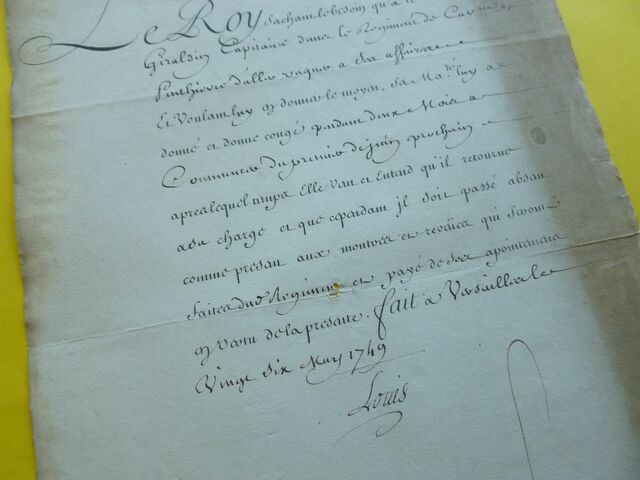 Le Roy sachant le besoin qu'a le S.
Giraldin Capitaine dans le Regiment de Caval
Penthievre d'aller vaquer a ses affaires
Et Voulant luy en donner le moyen, Sa Ma.té luy a
donné et donne congé pendant deux Mois a
Commencer du premier de juin prochain
apres lequel temps Elle Veut et Entend qu'il retourne
a sa charge et que cependant jl soit passé absent
comme present aux montres et reveües qui seront
faites dud. Regiment et payé de ses apointemens
en vertu de la presente. fait a Versailles le
Vingt six May 1749
Louis